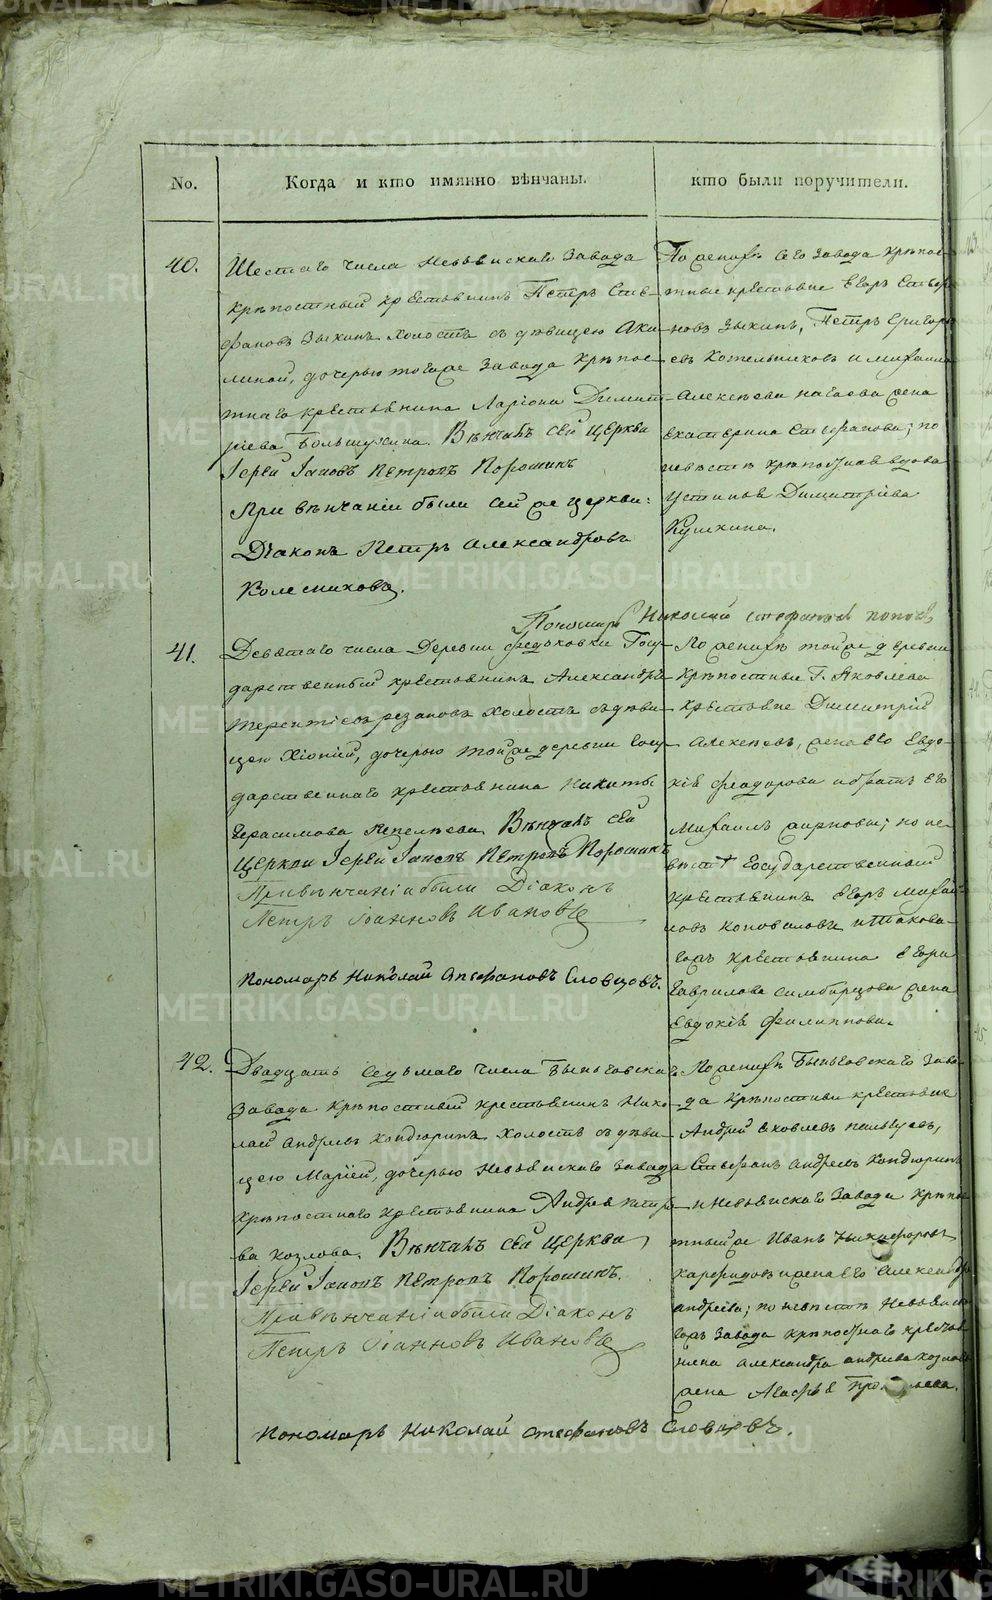 No.
Когда и кто имянно вѣнчаны.
кто были поручители.
40.
Шестаго числа Невьянскаго завода
крѣпостный крестьянинъ Петръ Сте-
фановъ Зыкинъ холостъ съ дѣвицею Аки-
линой, дочерью тогоже завода крѣпос-
тнаго крестьянина Ларіона Димит-
ріева Вѣнчалъ сей Церкви
Іерей Іаковъ Петровъ Порошинъ
При вѣнчаніи были сей же церкви:
Діаконъ Петръ Александровъ
Колесниковъ.
Пономарь Николай Стефановъ Поповъ
По женихѣ сего завода крѣпос-
тные крестьяне Егоръ Стефа-
новъ Зыкинъ, Петръ Григорь-
евъ Котельниковъ и Михаила
Алексѣева жена
Екатерина Стефанова; по
невѣстѣ крѣпостная вдова
Устинья Димитріева
41.
Девятаго числа Деревни Федьковки Госу-
дарственный крестьянинъ Александръ
Терентіевъ Резановъ холостъ съ дѣви-
цею Хіоніей, дочерью тойже деревни Госу-
дарственнаго крестьянина Никиты
Герасимова Пепеляева Вѣнчалъ сей
Церкви Іерей Іаковъ Петровъ Порошинъ
При вѣнчаніи были Діаконъ
Петръ Іоанновъ Ивановъ
Пономарь Николай Стефановъ Словцовъ.
По женихѣ тойже деревни
крѣпостные Г. Яковлева
крестьяне Димитрій
Алексѣевъ, жена его Евдо-
кія Феодорова и братъ его
Михаилъ; по не-
вѣстѣ Государственный
крестьянинъ Егоръ Михай-
ловъ Коноваловъ и такова-
гожъ крестьянина Егора
Гаврилова Симбирцова жена
Евдокія Филиппова.
42.
Двадцать седьмаго числа Быньговскаго
завода крѣпостный крестьянинъ Нико-
лай Андреевъ Кондюринъ холостъ съ дѣви-
цею Маріей, дочерью Невьянскаго завода
крѣпостнаго крестьянина Андрея Петро-
ва Козлова. Вѣнчалъ сей Церкви,
Іерей Іаковъ Петровъ Порошинъ.
При вѣнчаніи были Діаконъ
Петръ Іоанновъ Ивановъ
Пономарь Николай Стефановъ Словцовъ.
По женихѣ Быньговскаго заво-
да крѣпостные крестьяне
Андрей Яковлевъ
Стефанъ Андреевъ Кондюринъ
и Невьянскаго завода крѣпос-
тный же Иванъ Никифоровъ
и жена его Александра
Андреева; по невѣстѣ Невьянска-
гожъ завода крѣпостнаго крестья-
нина Александра Андреева Козлова
жена
METRIKI.GASO-URAL.RU